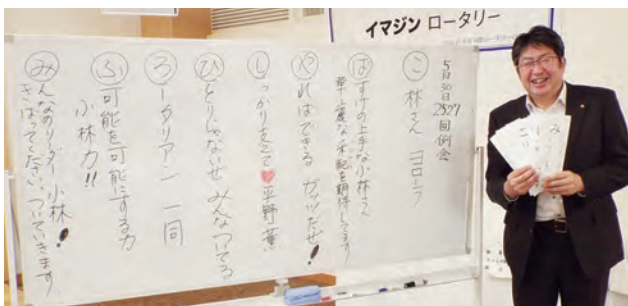 イマジン ロータリー
5月30日
2527回例会
こ 林さん
は すけの上手な小林さん
華麗な采配を期待してます
や ればできる ガッツだぜ!
し っかり支えて♥平野薫
ひ とりじゃないぜ みんなついてる
ろ ータリアン 一同
ふ 可能を可能にする力
小林力!!
み んなのリーダー 小林!
きばってください。ついていきます